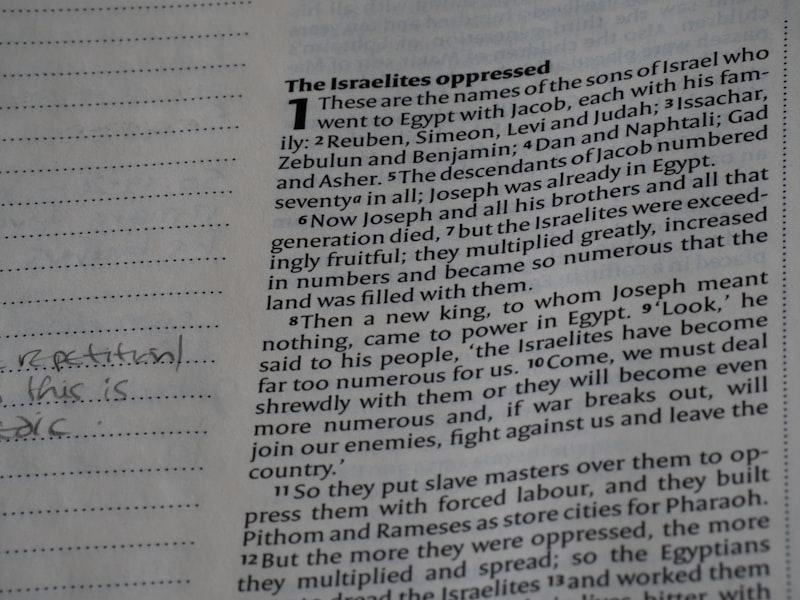 repetition/
this is
The Israelites oppressed
1 These are the names of the sons of Israel who
went to Egypt with Jacob, each with his fam-
ily: 2 Reuben, Simeon, Levi and Judah; 3 Issachar,
Zebulun and Benjamin; 4 Dan and Naphtali; Gad
and Asher. 5 The descendants of Jacob numbered
seventy a in all; Joseph was already in Egypt.
6 Now Joseph and all his brothers and all that
generation died, 7 but the Israelites were exceed-
ingly fruitful; they multiplied greatly, increased
in numbers and became so numerous that the
land was filled with them.
8 Then a new king, to whom Joseph meant
nothing, came to power in Egypt. 9 ‘Look,’ he
said to his people, ‘the Israelites have become
far too numerous for us. 10 Come, we must deal
shrewdly with them or they will become even
more numerous and, if war breaks out, will
join our enemies, fight against us and leave the
country.’
11 So they put slave masters over them to op-
press them with forced labour, and they built
Pithom and Rameses as store cities for Pharaoh.
12 But the more they were oppressed, the more
they multiplied and spread; so the Egyptians
dread the Israelites 13 and worked them
bitter with